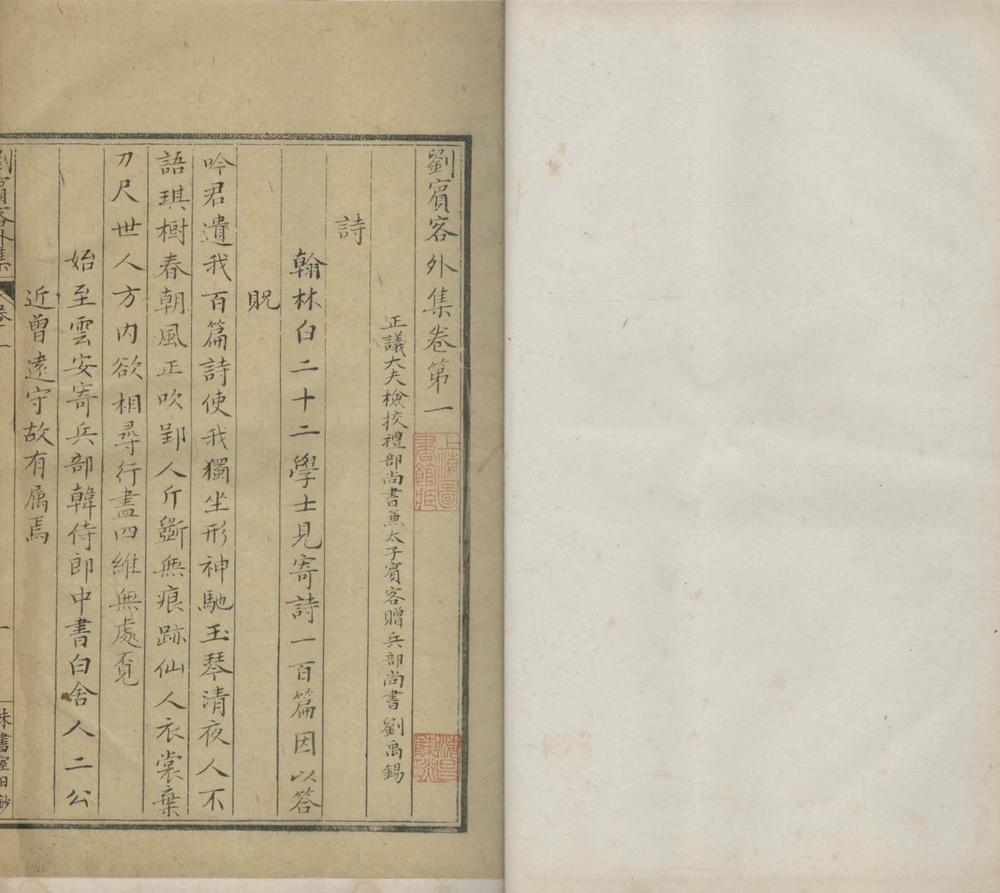 劉賓客外集卷第一
正議大夫檢挍禮部尚書兼太子賓客贈兵部尚書劉禹錫
詩
翰林白二十二學士見寄詩一百篇因以答
貺
吟君遺我百篇詩使我獨坐形神馳玉琴清夜人不
語琪樹春朝風正吹郢人斤斲無痕跡仙人衣裳棄
刀尺世人方內欲相尋行盡四維無處覔
始至雲安寄兵部韓侍郎中書白舍人二公
近曾遠守故有属焉
劉賓客外集
卷一
一
上海圖書館藏